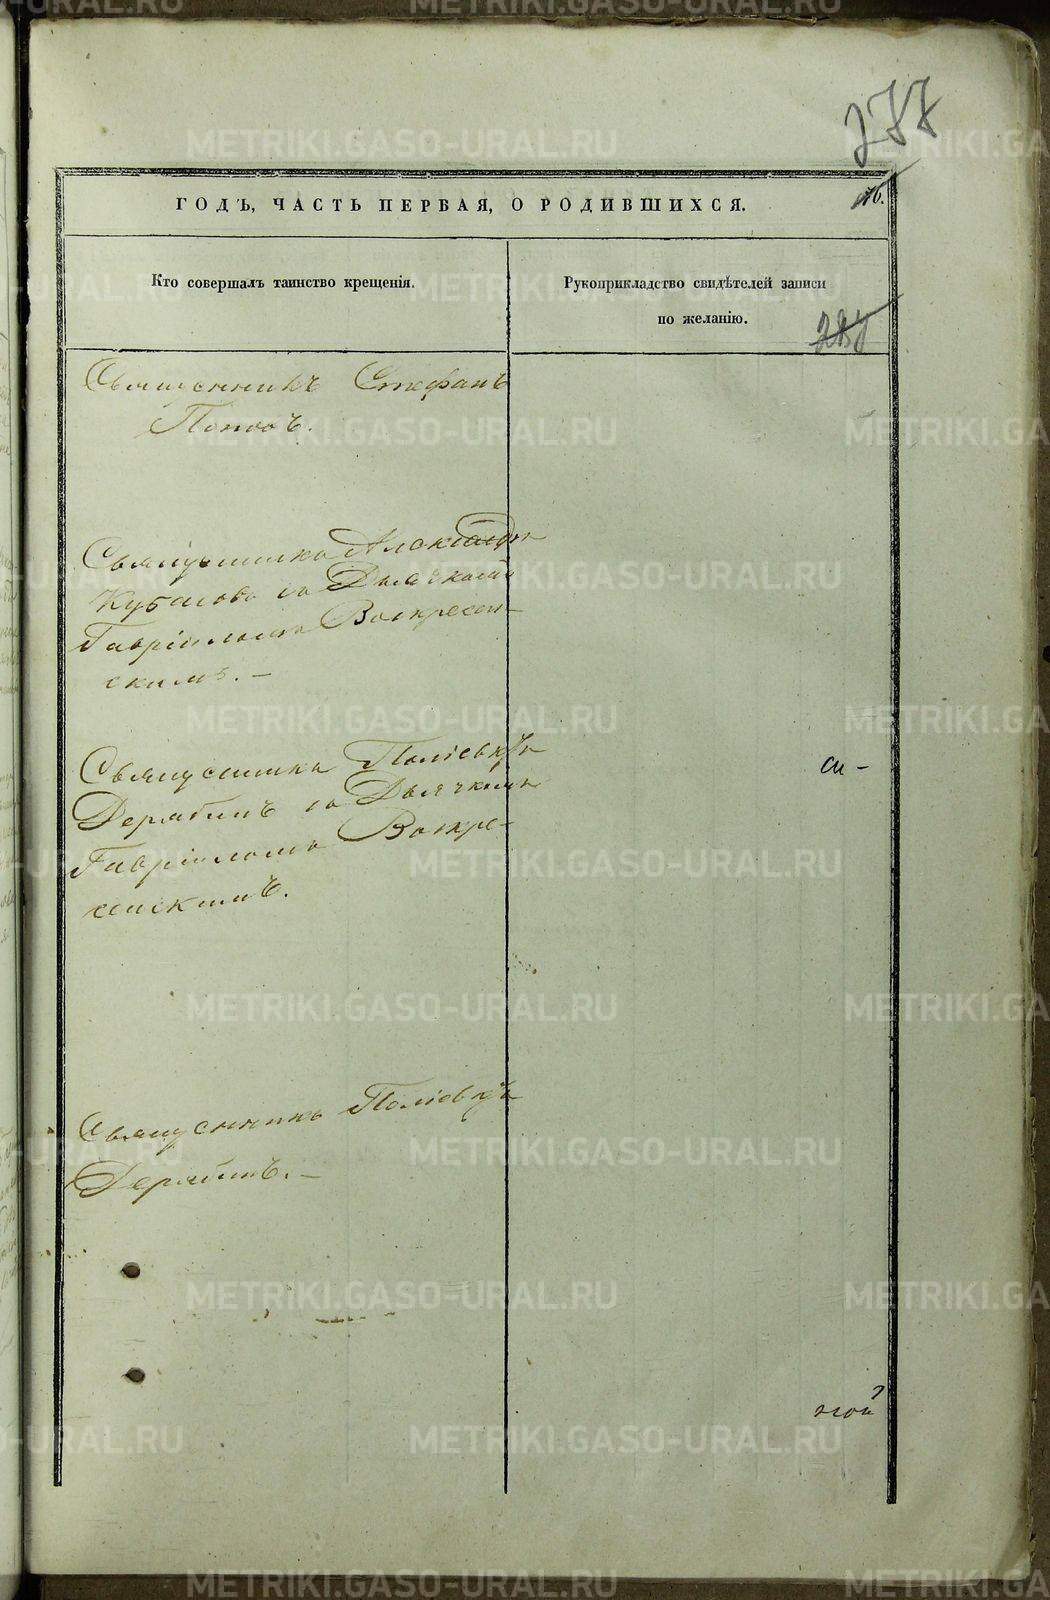 277
ГОДЪ, ЧАСТЬ ПЕРВАЯ, О РОДИВШИХСЯ.
Кто совершалъ таинство крещенія.
Рукоприкладство свидѣтелей записи
по желанію.
Священникъ Стефанъ
Поповъ.
Священникъ Александръ
Кубасовъ съ Дьячкомъ
Гавріиломъ Воскресен-
скимъ. —
Священникъ Поліевктъ
Дерябинъ съ Дьячкомъ
Гавріиломъ Воскре-
сенскимъ.
Священникъ Поліевктъ
Дерябинъ. —
METRIKI.GASO-URAL.RU